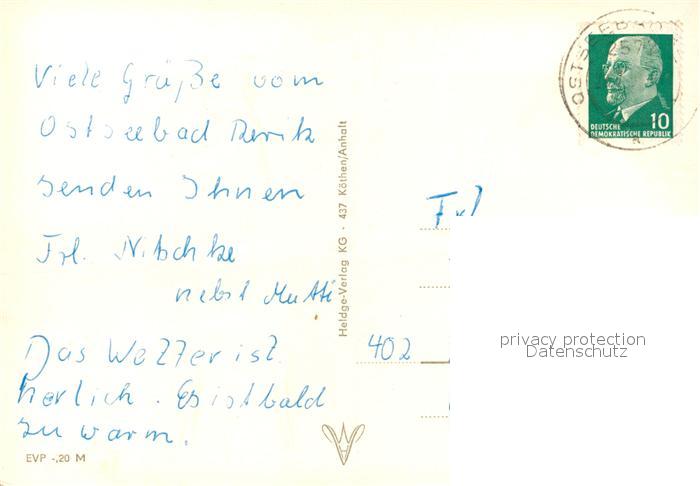 Viele Grüße vom
Ostseebad Rerik
senden Ihnen
Frl. Nitschke
nebst Mutti
Das Wetter ist
herlich. Es ist bald
zu warm.
EVP -,20 M
Heldge-Verlag KG · 437 Köthen/Anhalt
OSTSEEBAD
10
DEUTSCHE
DEMOKRATISCHE REPUBLIK
402
privacy protection
Datenschutz